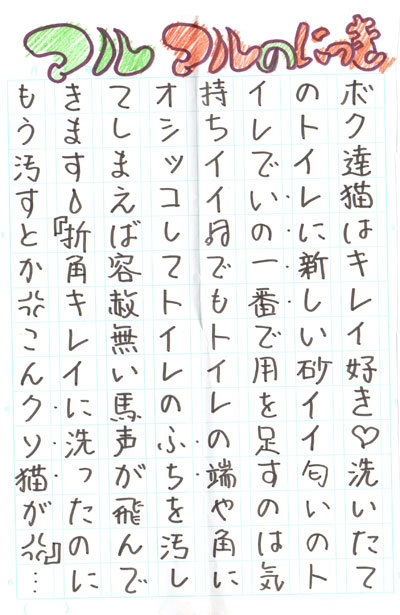 マルマルのにっき
ボク達猫はキレイ好き♡洗いたて
のトイレに新しい砂イイ匂いのト
イレでいの一番で用を足すのは気
持ちイイ♪でもトイレの端や角に
オシッコしてトイレのふちを汚し
てしまえば容赦無い馬声が飛んで
きます💧『折角キレイに洗ったのに
もう汚すとか💢こんクソ猫が💢』…